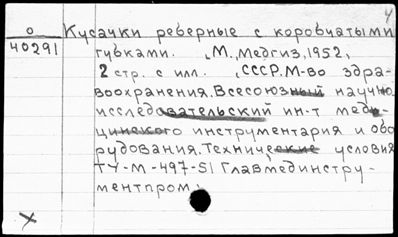 4
О Кусачки реверные с коробчатыми
40291 губками. М., Медгиз, 1952,
2 стр. с илл. СССР. М-во здра-
воохранения. Всесоюзный научно
исследовательский ин-т меди-
цинского инструментария и обо
рудования. Технические условия
ТУ-М-497-51 Главмединстру-
ментпром.
X